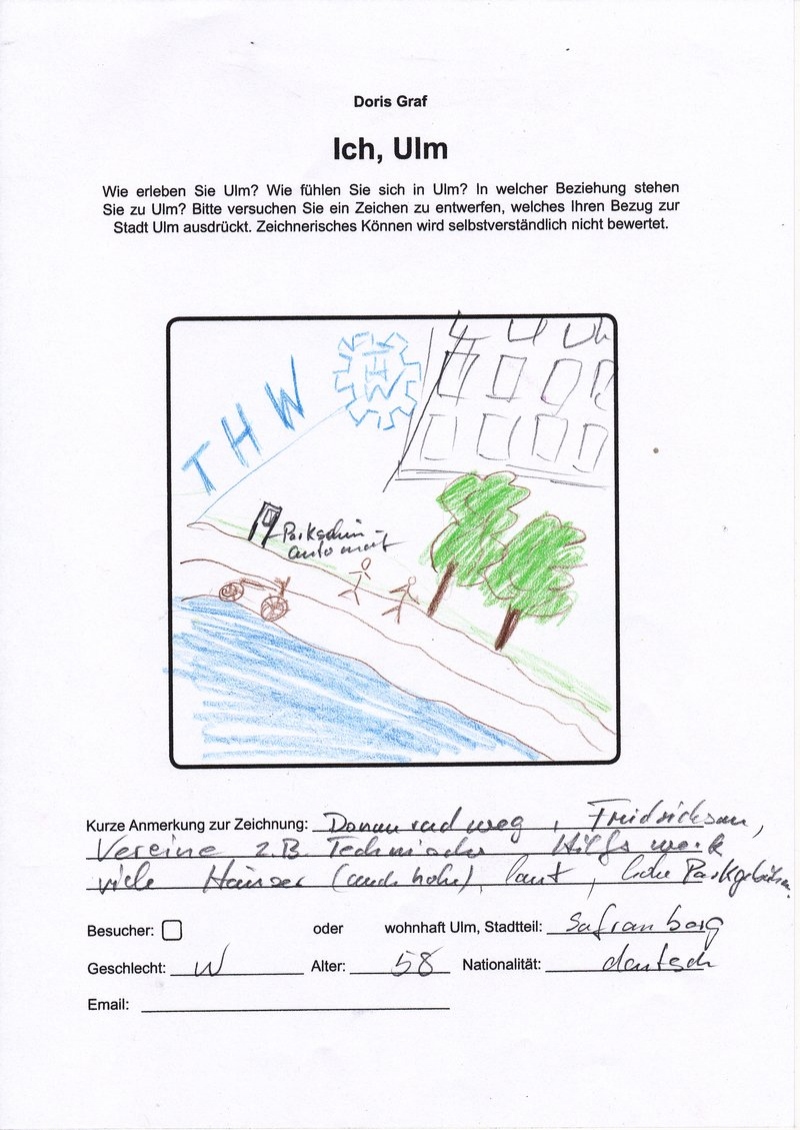 Doris Graf
Ich, Ulm
Wie erleben Sie Ulm? Wie fühlen Sie sich in Ulm? In welcher Beziehung stehen
Sie zu Ulm? Bitte versuchen Sie ein Zeichen zu entwerfen, welches Ihren Bezug zur
Stadt Ulm ausdrückt. Zeichnerisches Können wird selbstverständlich nicht bewertet.
THW
THW
Parkschein-
automat
Kurze Anmerkung zur Zeichnung: Donauradweg, Fridrichsau,
Vereine z.B Technisches Hilfswerk
viele Häuser (auch hohe), laut, hohe Parkgebühren.
Besucher: oder wohnhaft Ulm, Stadtteil: Safranberg
Geschlecht: W Alter: 58 Nationalität: deutsch
Email: